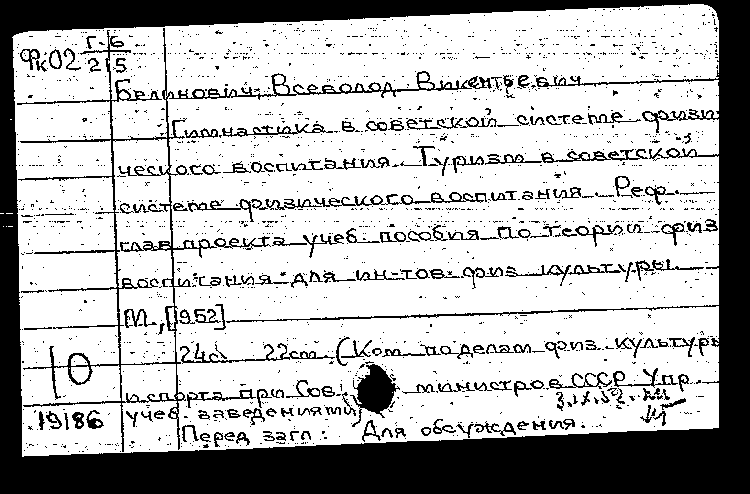 Фк02 Г-6
2/5
Белинович, Всеволод Викентьевич
Гимнастика в советской системе физи
ческого воспитания. Туризм в советской
системе физического воспитания. Реф.
глав проекта учеб. пособия по теории физ
воспитания для ин-тов физ культуры.
М., [1952]
24с. 22см. (Ком. по делам физ. культуры
10
и спорта при Сов. министров СССР. Упр.
19186 учеб. заведениями)
Перед загл: Для обсуждения.